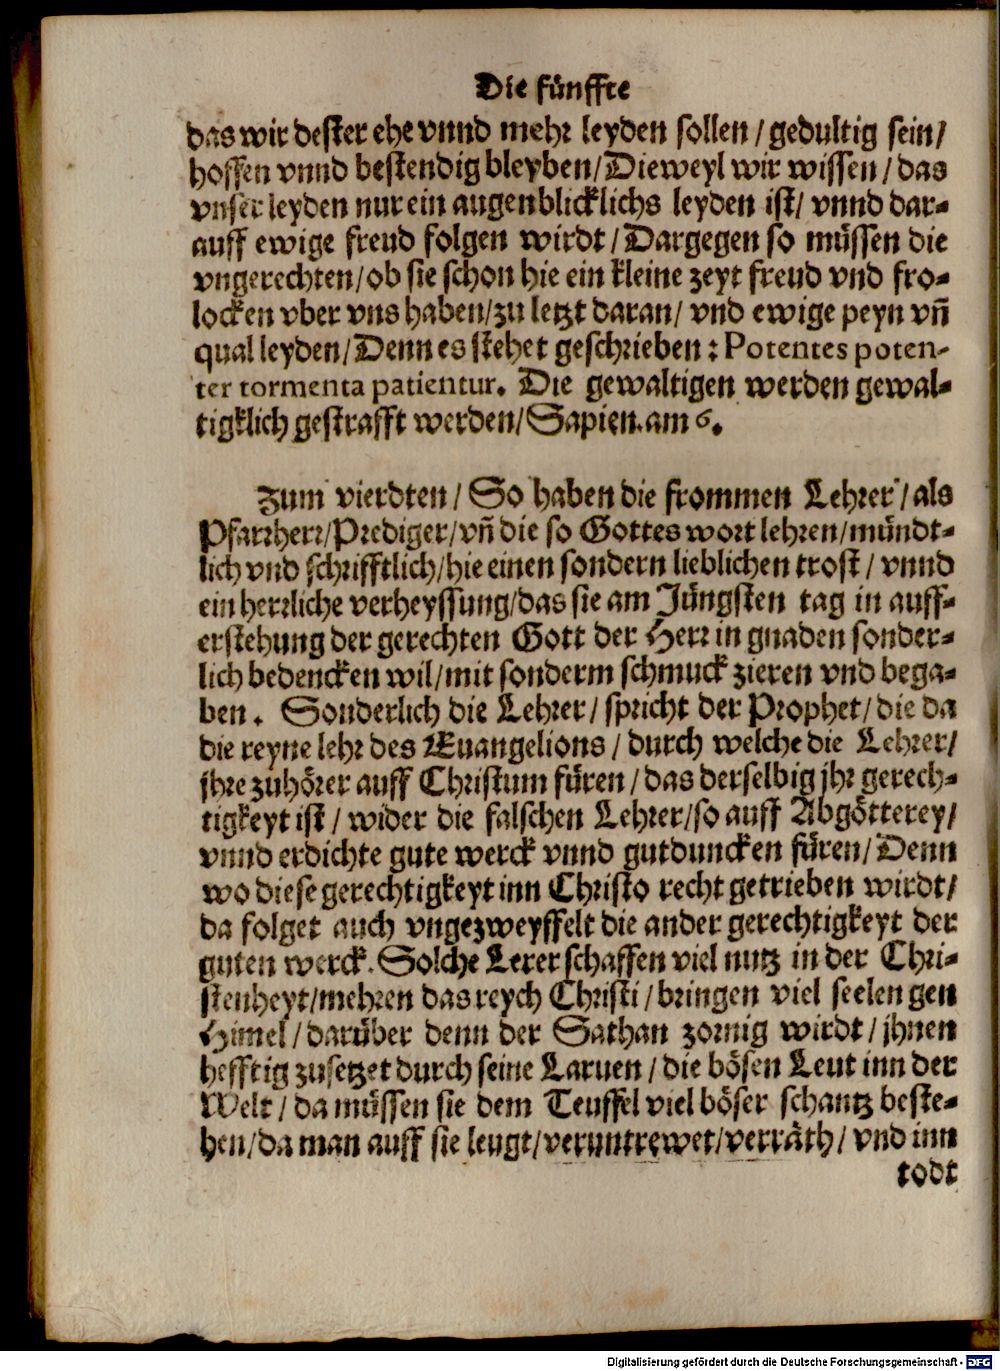 Die fünffte
das wir dester ehe vnnd mehr leyden sollen / gedultig sein/
hoffen vnnd bestendig bleyben/Dieweyl wir wissen / das
vnser leyden nur ein augenblicklichs leyden ist/ vnnd dar-
auff ewige freud folgen wirdt / Dargegen so müssen die
vngerechten/ob sie schon hie ein kleine zeyt freud vnd fro-
locken vber vns haben/zu letzt daran/ vnd ewige peyn vñ
qual leyden/Denn es stehet geschrieben : Potentes poten-
ter tormenta patientur. Die gewaltigen werden gewal-
tigklich gestrafft werden/Sapien.am 6.
Zum vierdten / So haben die frommen Lehrer / als
Pfarrherr/Prediger/vñ die so Gottes wort lehren/mündt-
lich vnd schrifftlich/hie einen sondern lieblichen trost / vnnd
ein herrliche verheyssung/das sie am Jüngsten tag in auff-
erstehung der gerechten Gott der Herr in gnaden sonder-
lich bedencken wil/mit sonderm schmuck zieren vnd bega-
ben. Sonderlich die Lehrer/ spricht der Prophet/ die da
die reyne lehr des Euangelions / durch welche die Lehrer/
jhre zuhörer auff Christum füren / das derselbig jhr gerech-
tigkeyt ist / wider die falschen Lehrer/so auff Abgötterey/
vnnd erdichte gute werck vnnd gutduncken füren/ Denn
wo diese gerechtigkeyt inn Christo recht getrieben wirdt/
da folget auch vngezweyffelt die ander gerechtigkeyt der
guten werck. Solche Lerer schaffen viel nutz in der Chri-
stenheyt/mehren das reych Christi / bringen viel seelen gen
Himel / darüber denn der Sathan zornig wirdt / jhnen
hefftig zusetzet durch seine Laruen / die bösen Leut inn der
Welt / da müssen sie dem Teuffel viel böser schantz beste-
hen/da man auff sie leugt/veruntrewet/verräth/ vnd inn
todt
Digitalisierung gefördert durch die Deutsche Forschungsgemeinschaft - DFG